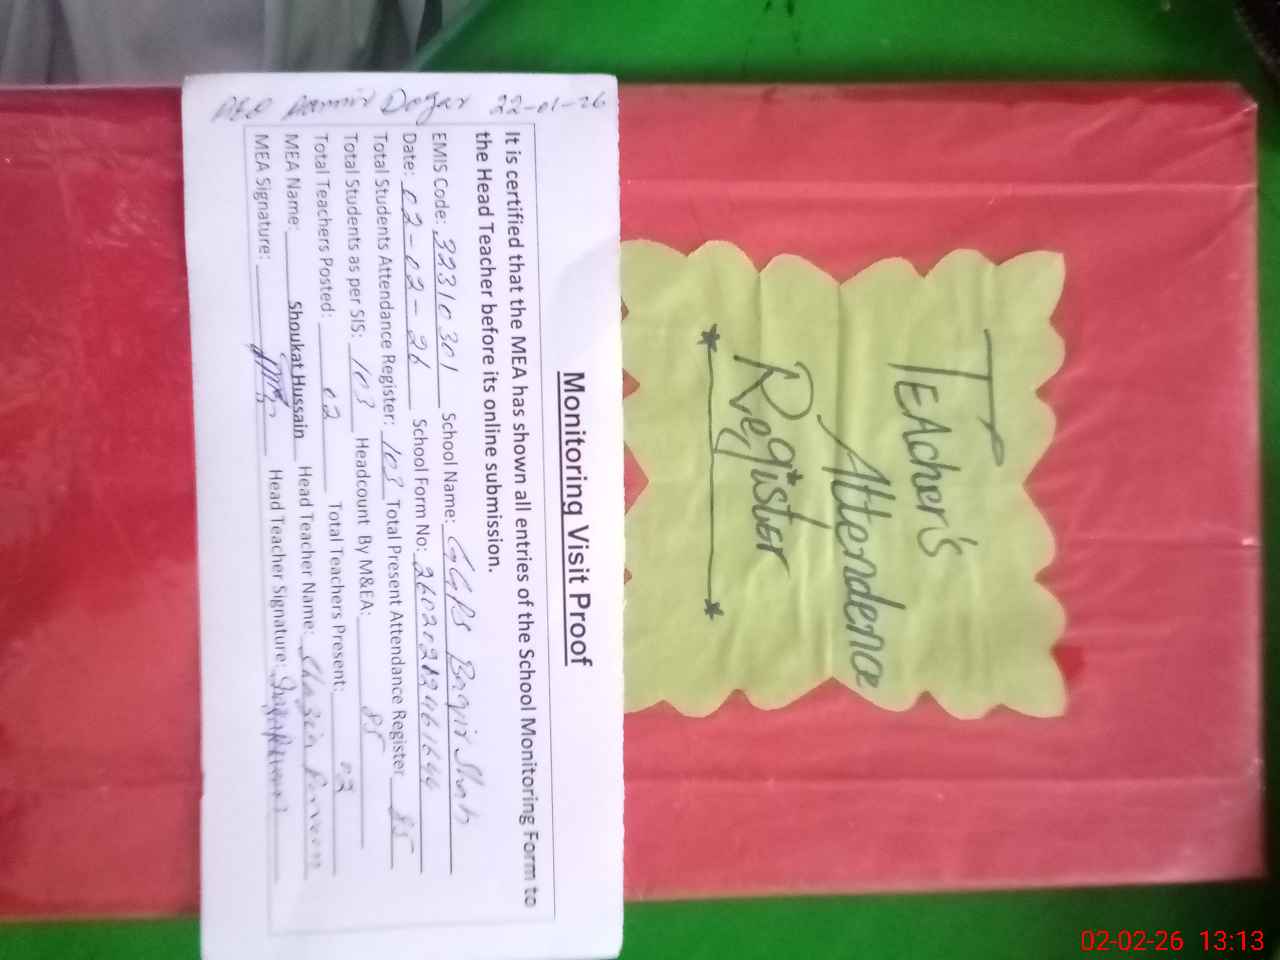 TEAcher's
Attendence
Register
Monitoring Visit Proof
It is certified that the MEA has shown all entries of the School Monitoring Form to
the Head Teacher before its online submission.
EMIS Code: 32310301 School Name: GGPS Baqir Shah
Date: 02-02-26 School Form No:
Total Students Attendance Register: 103 Total Present Attendance Register 85
Total Students as per SIS: 103 Headcount By M&EA: 85
Total Teachers Posted: 02 Total Teachers Present: 02
MEA Name: Shoukat Hussain Head Teacher Name: Parveen
MEA Signature: Head Teacher Signature:
Dogar 22-01-26
02-02-26 13:13